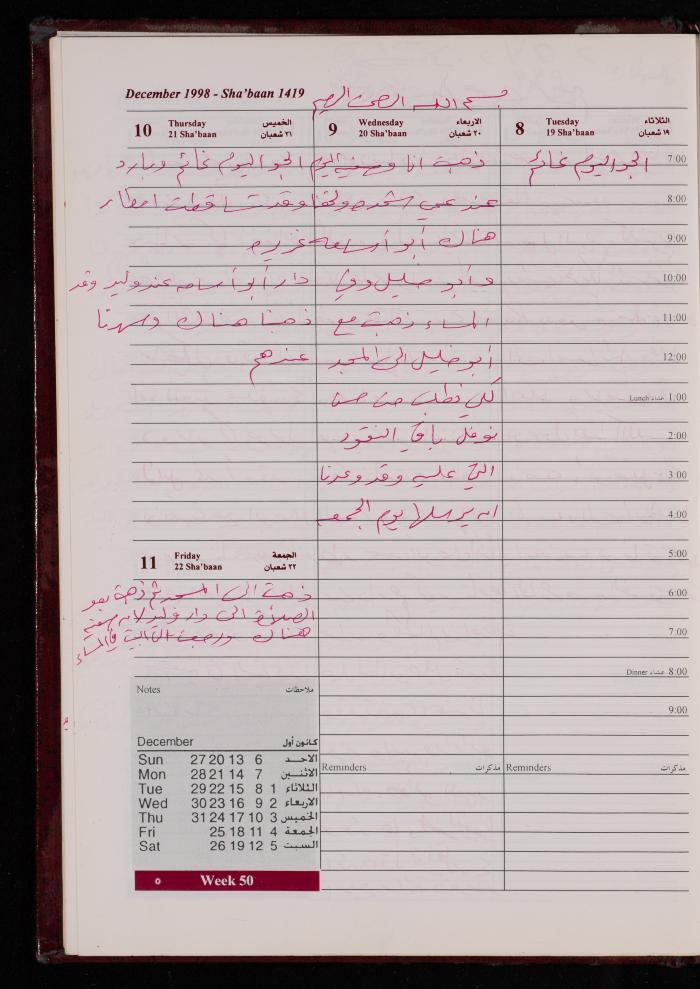 December 1998 - Sha'baan 1419
بسم الله الرحمن الرحيم
الثلاثاء
١٩ شعبان
Tuesday
19 Sha'baan
8
الجو اليوم غائم
7:00
8:00
9:00
10:00
11:00
12:00
Lunch غداء 1:00
2:00
3:00
4:00
5:00
6:00
7:00
Dinner عشاء 8:00
9:00
Reminders مذكرات
الاربعاء
٢٠ شعبان
Wednesday
20 Sha'baan
9
ذهبت انا و اليوم
عند عمي
هناك أبو أسامه
و أبو خليل وفي
المساء ذهبت مع
أبو خليل الى المسجد
لكي نطلب من حسن
نوفل باقي النقود
التي عليه وقد وعدنا
انه يرسلها يوم الجمعه
Reminders مذكرات
الخميس
٢١ شعبان
Thursday
21 Sha'baan
10
الجو اليوم غائم وبارد
وقد تساقطت امطار
غزيره
دار أبو أسامه عند وليد وقد
ذهبنا هناك وسهرنا
عندهم
الجمعة
٢٢ شعبان
Friday
22 Sha'baan
11
ذهبت الى المسجد ثم ذهبت بعد
الصلاة الى دار وليد لانه
هناك ورجعت الى البيت في المساء
Notes ملاحظات
December كانون أول
Sun 27 20 13 6 الاحـد
Mon 28 21 14 7 الاثنـين
Tue 29 22 15 8 1 الثلاثاء
Wed 30 23 16 9 2 الاربعاء
Thu 31 24 17 10 3 الخميس
Fri 25 18 11 4 الجمعة
Sat 26 19 12 5 السبت
Week 50